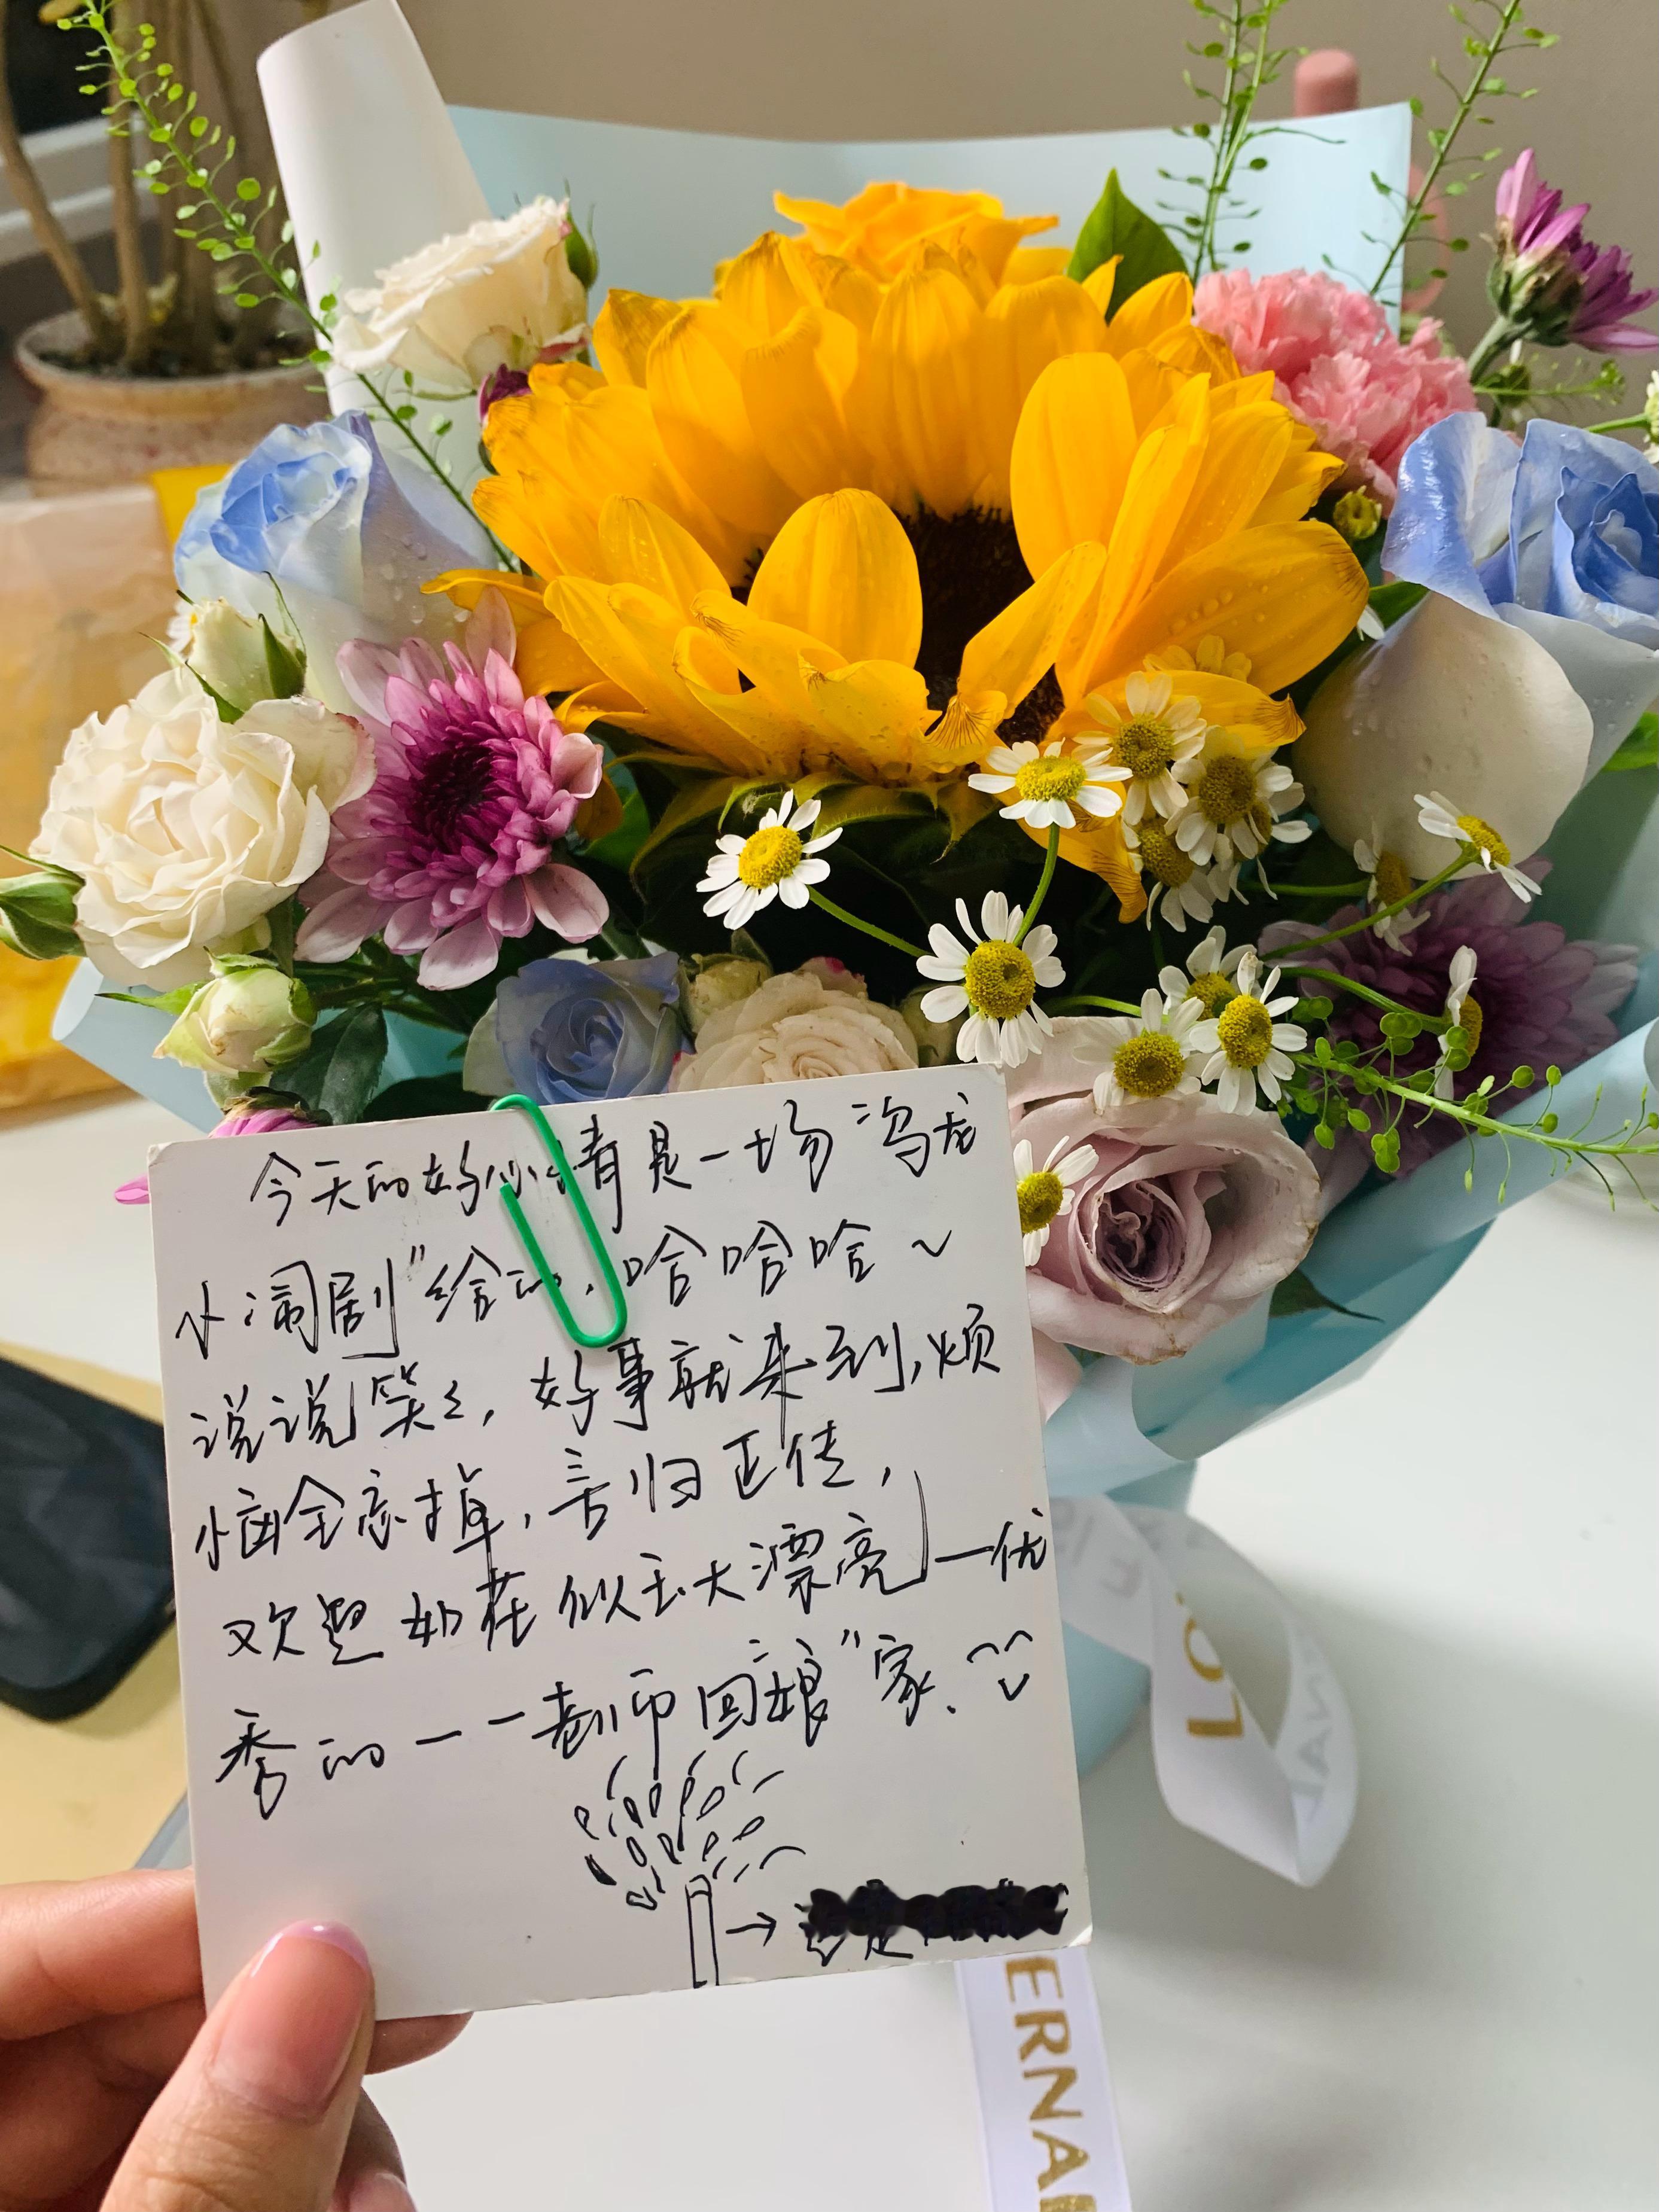 今天的好心情是一场"乌龙
小闹剧"给的,哈哈哈~
说说笑笑,好事就来到,烦
恼全忘掉,言归正传,
欢迎如花似玉大漂亮—优
秀的——老师回"娘"家.
LO
ERNAL